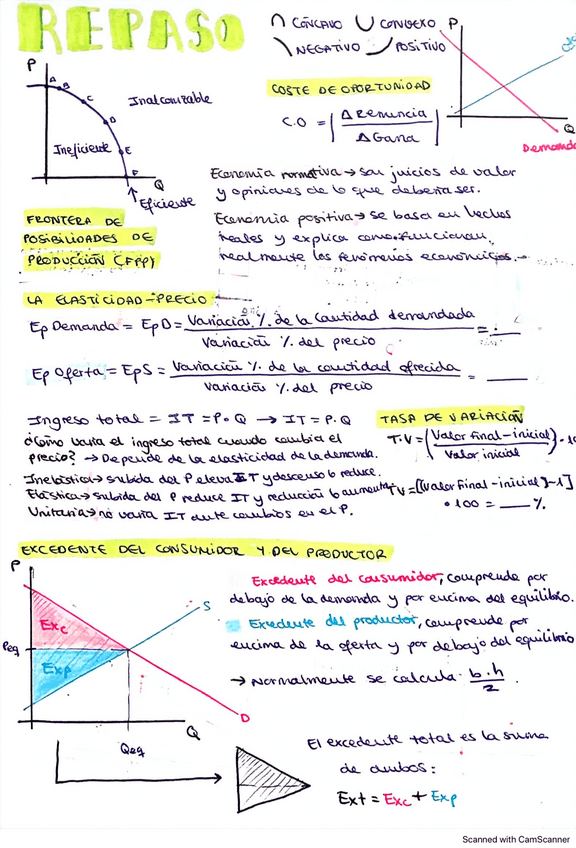 REPASO
∩ CÓNCAVO ∪ CONVEXO
\ NEGATIVO / POSITIVO
P
Q
Demanda
P
A
B
C
D
E
F
Inalcanzable
Ineficiente
Q
↑ Eficiente
COSTE DE OPORTUNIDAD
C.O = | Δ Renuncia / Δ Gana |
Economía normativa → son juicios de valor
y opiniones de lo que debería ser.
Economía positiva → se basa en hechos
reales y explica como funcionan
realmente los fenómenos económicos.
FRONTERA DE
POSIBILIDADES DE
PRODUCCIÓN (FPP)
LA ELASTICIDAD-PRECIO
Ep Demanda = EpD = Variación % de la cantidad demandada / Variación % del precio = __
Ep Oferta = EpS = Variación % de la cantidad ofrecida / Variación % del precio = __
Ingreso total = IT = P·Q → IT = P.Q
¿Cómo varía el ingreso total cuando cambia el
precio? → Depende de la elasticidad de la demanda.
Inelástica → subida del P eleva IT y descenso lo reduce.
Elástica → subida del P reduce IT y reducción lo aumenta
Unitaria → no varía IT ante cambios en el P.
TASA DE VARIACIÓN
T.V = (Valor final - inicial / Valor inicial) · 10
TV = [(Valor Final - inicial) - 1]
· 100 = __ %
EXCEDENTE DEL CONSUMIDOR Y DEL PRODUCTOR
P
Exc
Peq
Exp
S
D
Q
Qeq
Excedente del consumidor, comprende por
debajo de la demanda y por encima del equilibrio.
Excedente del productor, comprende por
encima de la oferta y por debajo del equilibrio
→ Normalmente se calcula: b.h / 2
El excedente total es la suma
de ambos:
Ext = Exc + Exp
Scanned with CamScanner